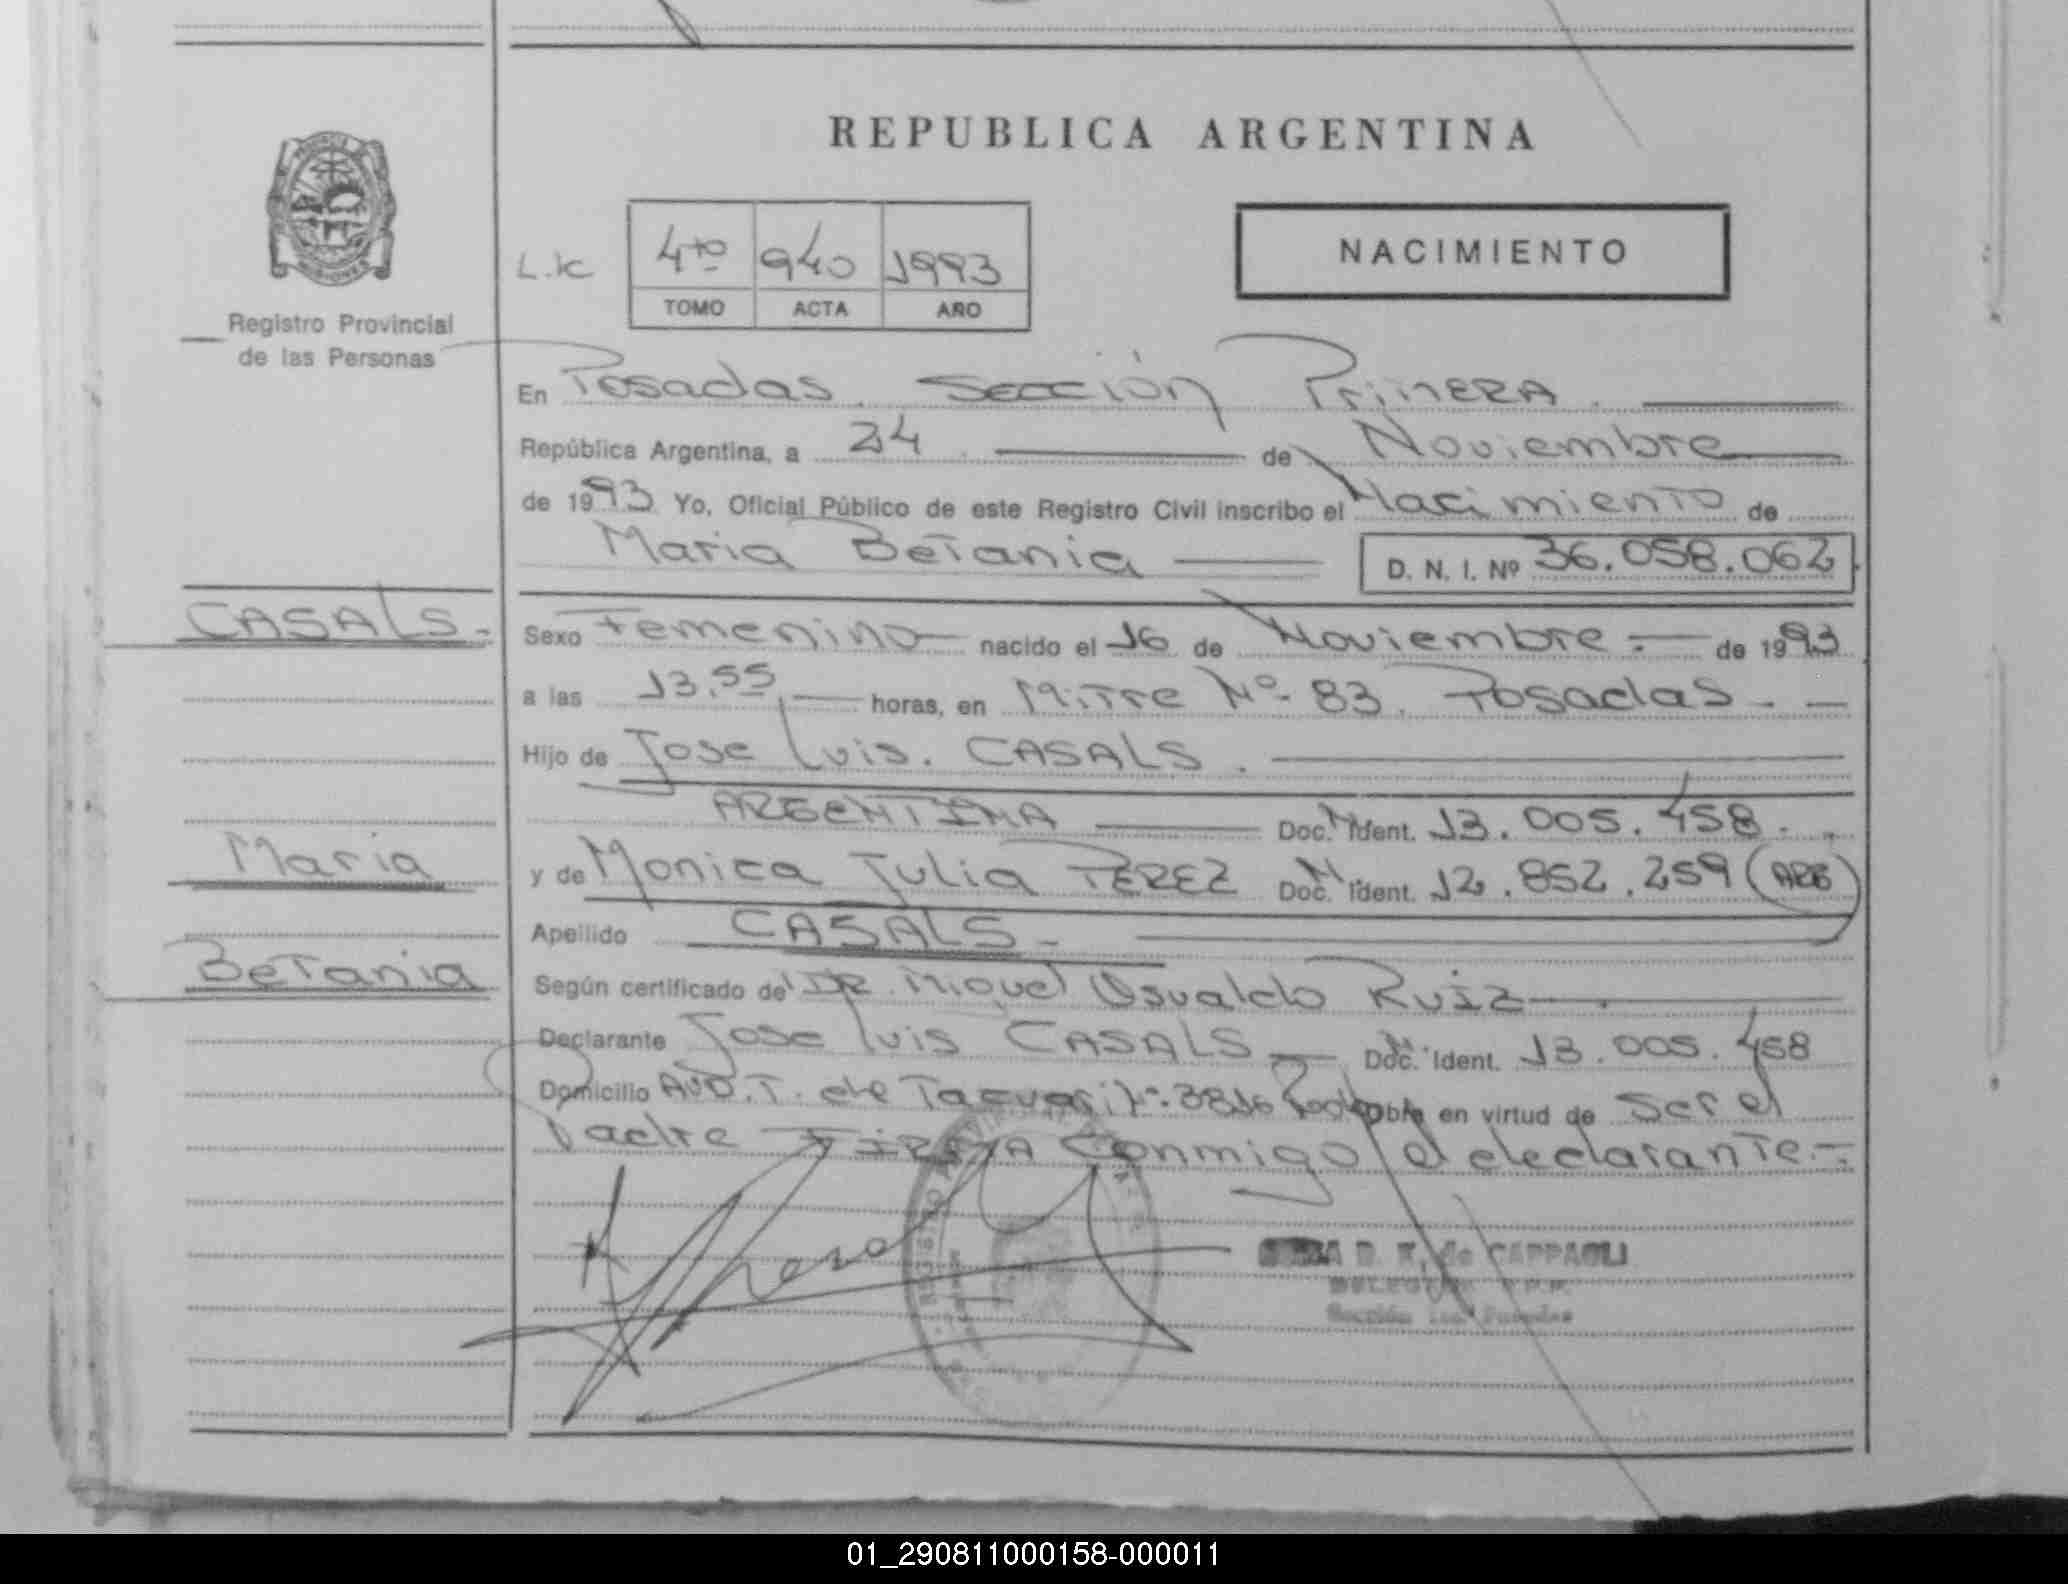 REPUBLICA ARGENTINA
PROVINCIA
MISIONES
Registro Provincial
de las Personas
L.K
4to 940 1993
TOMO ACTA AÑO
NACIMIENTO
En Posadas. Sección Primera.
República Argentina, a 24 de Noviembre
de 1993 Yo, Oficial Público de este Registro Civil inscribo el Nacimiento de
Maria Betania D. N. I. Nº 36.058.062
CASALS.
Sexo Femenino nacido el 16 de Noviembre.- de 1993
a las 13,55 horas, en Mitre Nº 83. Posadas.-
Hijo de Jose Luis. CASALS.
ARGENTINA Doc. N. Ident. 13.005.458.
Maria
y de Monica Julia PEREZ Doc. N. Ident. 12.852.259 (ARG)
Apellido CASALS.-
Betania
Según certificado del DR. Miguel Osvaldo Ruiz
Declarante Jose Luis CASALS Doc. N. Ident. 13.005.458
Domicilio AVD. T. de Tacuari Nº 3816 en virtud de ser el
Padre FIRMA conmigo el declarante.-
D. K. de CAPPAGLI
Sección
REGISTRO
01_290811000158-000011